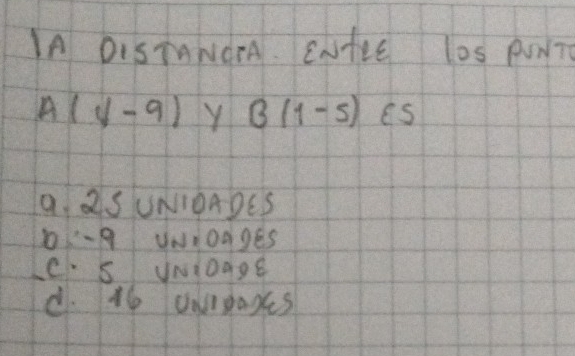 LA DISTANCIA ENTRE los PUNTO
A(4-9) Y B(1-5) ES
a. 25 UNIDADES
b. -9 UNIDADES
c. 5 UNIDADE
d. 16 UNIDADES